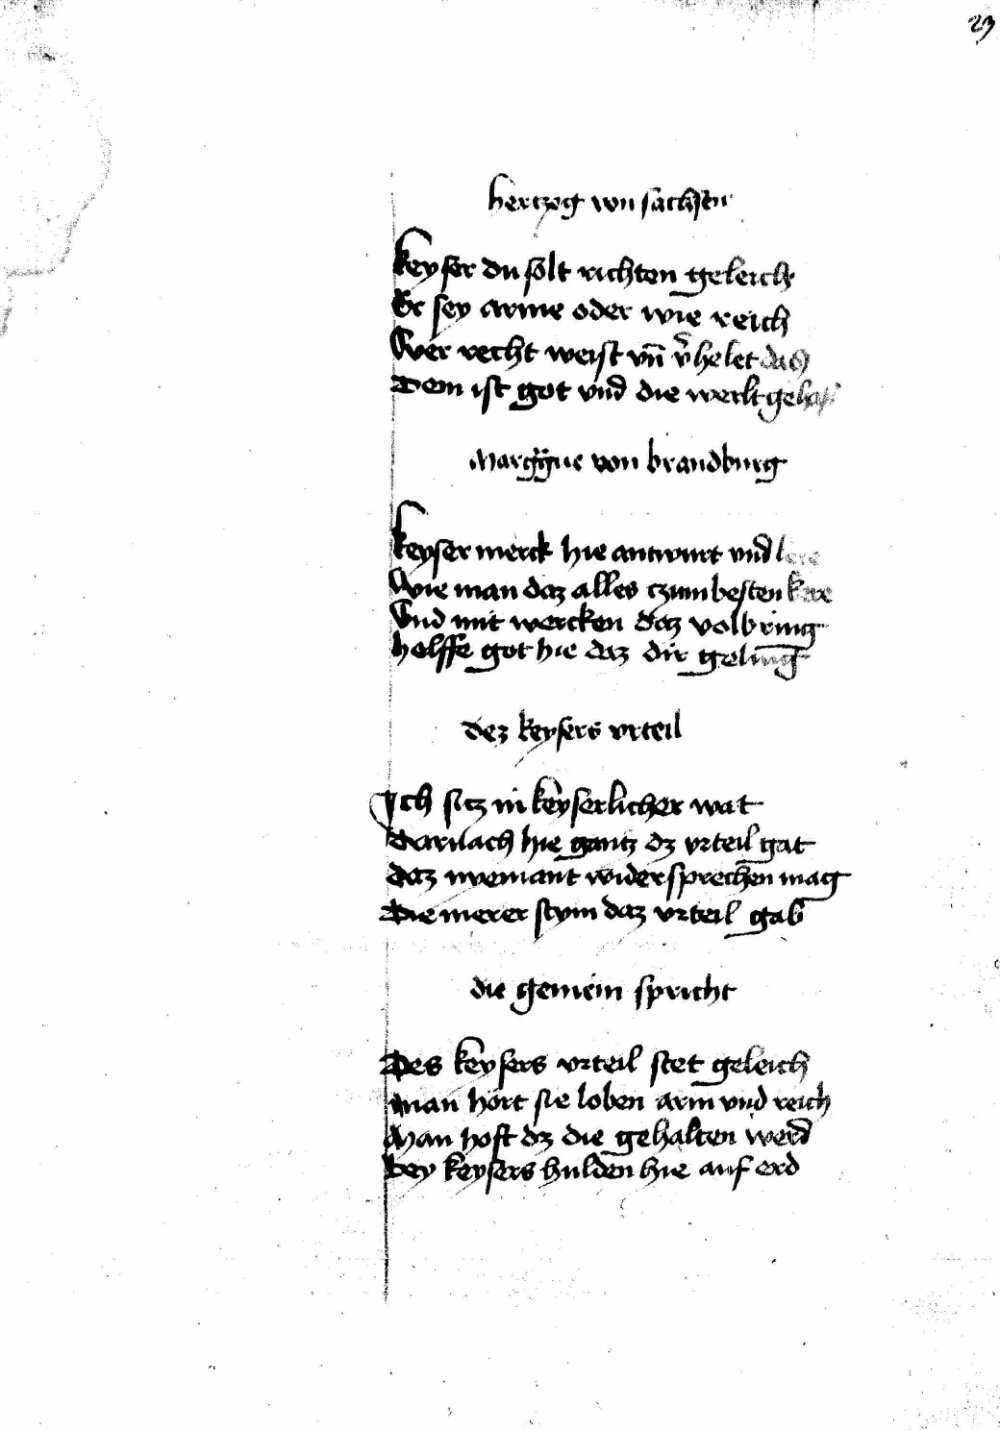 23
hertzog von sachsen
Keyser du solt richten geleich
Er sey arme oder wie reich
Wer recht weist vn̄ v̓helet daß
Dem ist got vnd die werlt gehaß
Marggraue von brandburg
Keyser merck hie antwurt vnd lere
Wie man daz alles czum besten kere
Vnd mit wercken daz volbring
helffe got hie daz dir geling
dez keysers vrteil
Ich sitz in keyserlicher wat
darnach hie gantz dz vrteil gat
daz nyemant widersprechen mag
Die merer stym daz vrteil gab
die gemein spricht
Des keysers vrteil stet geleich
man hört sie loben arm vnd reich
Man hoft dz die gehalten werd
bey keysers hulden hie auf erd